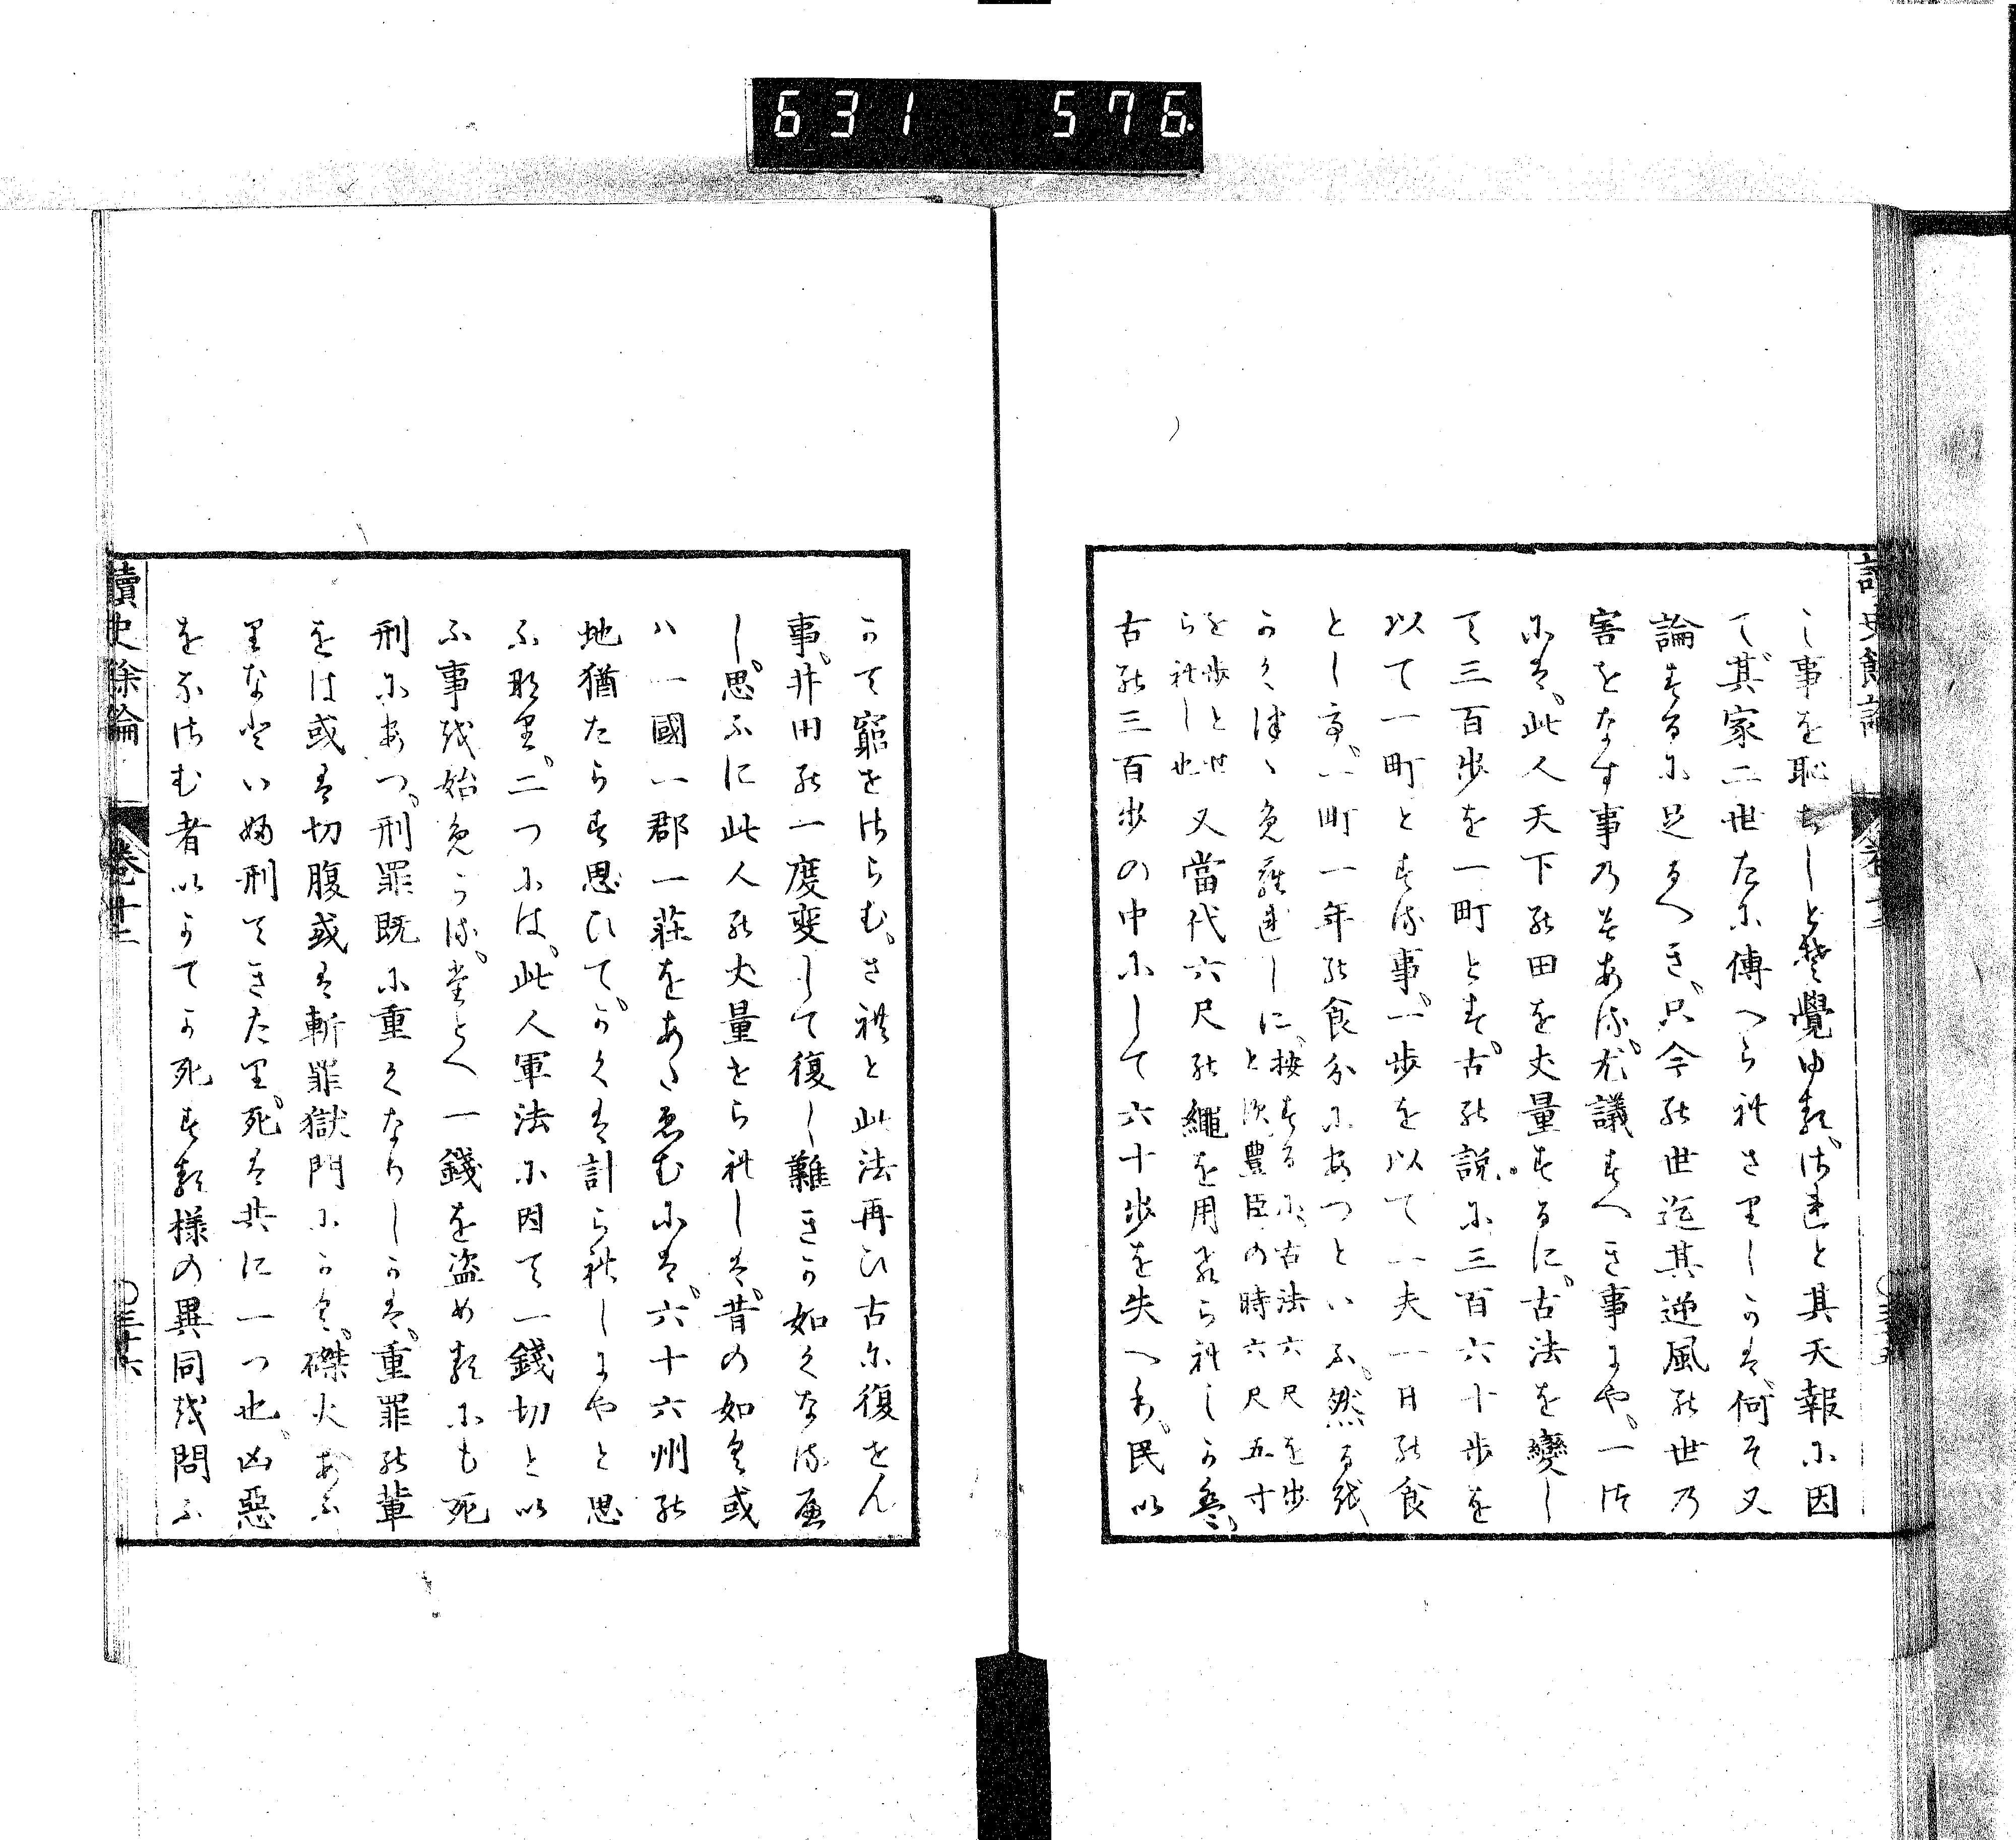 631 576.
し事を恥ちしとそ覺ゆる、されと其天報に因
て、其家二世たに傳へられさりしかは、何そ又
論するに足るへき、只今の世迄其逆風の世の
害をなす事のみある、尤議すへき事にや、一つ
には、此人天下の田を丈量するに、古法を變し
て三百歩を一町とす、古の説に三百六十歩を
以て一町とする事、一歩を以て一夫一日の食
とし、一町一年の食分にあつといふ、然るを
かくつゝめられしに、按するに、古法六尺を歩
と次豊臣の時六尺五寸
を歩とせ
られし也又當代六尺の繩を用ゐられしかは、
古の三百歩の中にして六十歩を失へり、民い
かて窮せさらむ、されと此法再ひ古に復せん
事、井田の一度変して復し難きか如くなるへ
し、思ふに此人の丈量せられしは、昔の如く或
ハ一國一郡一莊をあらためむには、六十六州の
地猶たらす思ひて、かくは計られしにやと思
ふ也、二つには、此人軍法に因て一錢切とい
ふ事を始めらる、たとへ一錢を盗めるにも死
刑にあつ、刑罪既に重くなりしかは、重罪の輩
をは或は切腹或は斬罪獄門にかく、磔火あふ
りなといふ刑てきたり、死は共に一つ也、凶惡
をなさむ者いかてか死する様の異同を問ふ
讀史餘論
卷十二
〇三十六